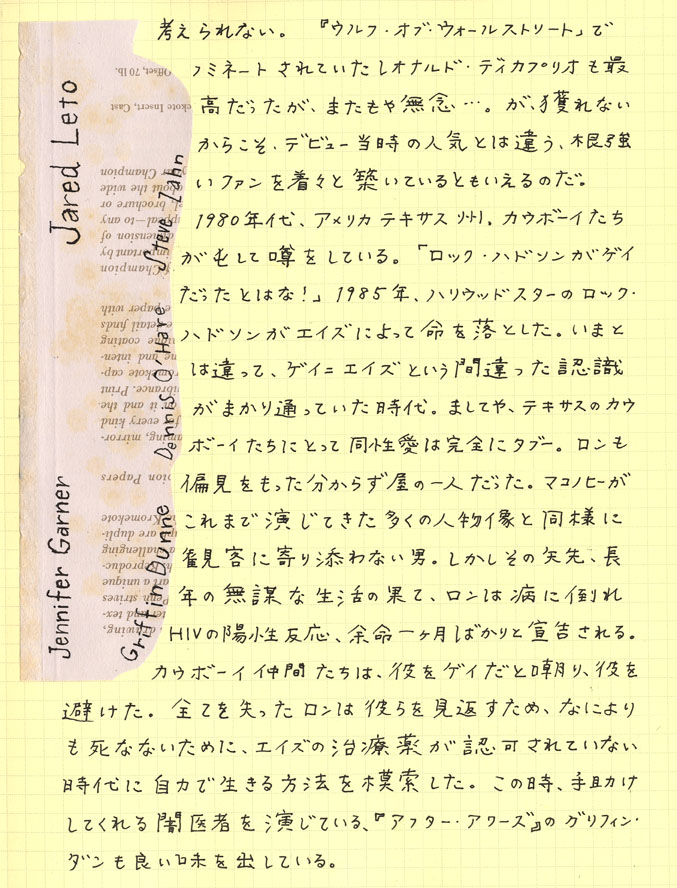 考えられない。『ウルフ・オブ・ウォールストリート』で
ノミネートされていたレオナルド・ディカプリオも最
高だったが、またもや無念…。が、獲れない
からこそ、デビュー当時の人気とは違う、根強
いファンを着々と築いているともいえるのだ。
1980年代、アメリカテキサス州。カウボーイたち
が屯して噂をしている。「ロック・ハドソンがゲイ
だったとはな!」1985年、ハリウッドスターのロック・
ハドソンがエイズによって命を落とした。いまと
は違って、ゲイ=エイズという間違った認識
がまかり通っていた時代。ましてや、テキサスのカウ
ボーイたちにとって同性愛は完全にタブー。ロンも
偏見をもった分からず屋の一人だった。マコノヒーが
これまで演じてきた多くの人物像と同様に
観客に寄り添わない男。しかしその矢先、長
年の無謀な生活の果て、ロンは病に倒れ
HIVの陽性反応、余命一ヶ月ばかりと宣告される。
カウボーイ仲間たちは、彼をゲイだと嘲り、彼を
避けた。全てを失ったロンは彼らを見返すため、なにより
も死なないために、エイズの治療薬が認可されていない
時代に自力で生きる方法を模索した。この時、手助け
してくれる闇医者を演じている、『アフター・アワーズ』のグリフィン・
ダンも良い味を出している。
Jared Leto
Jennifer Garner
Steve Zahn
Dennis O'Hare
Griffin Dunne
Offset, 70 lb.
ekote Insert, Cast
Champion
about the wide
brochure or
peal—to any
dimension of
important by
Champion
paper with
detail finds
coating
and inten-
kromekote cap-
vibrance. Print
it and the
every kind
mirror-
Papers
Kromekote
are dupli-
challenging
produc-
art a unique
strives
and tex-
drawing,